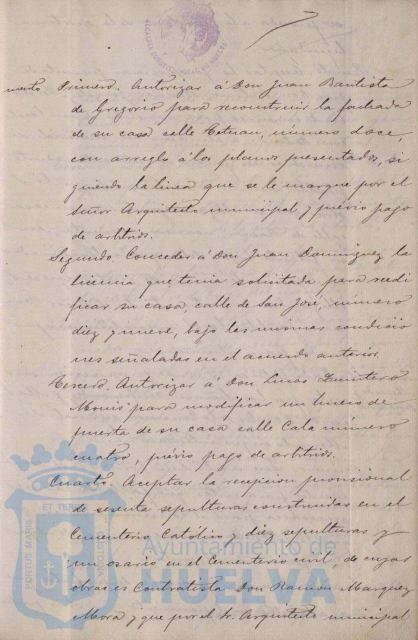 mento Primero. Autorizar á Don Juan Bautista
de Gregorio para reconstruir la fachada
de su casa calle Tetuan, número doce,
con arreglo á los planos presentados, si
guiendo la línea que se le marque por el
Señor Arquitecto municipal y previo pago
de arbitrios.
Segundo. Conceder á Don Juan Dominguez la
licencia que tenia solicitada para reedi
ficar su casa, calle de San José, número
diez y nueve, bajo las mismas condicio
nes señaladas en el acuerdo anterior.
Tercero. Autorizar á Don Lucas Quintero
para modificar un hueco de
puerta de su casa calle Cala número
cuatro, previo pago de arbitrios.
Cuarto. Aceptar la recepcion provisional
de sesenta sepulturas construidas en el
Cementerio Católico y diez sepulturas y
un osario en el Cementerio civil de cuyas
obras es Contratista Don Ramon Marquez
Mora y que por el Sr. Arquitecto municipal
PORTUS MARIS ET TERRAE CUSTODIA
Ayuntamiento de
HUELVA